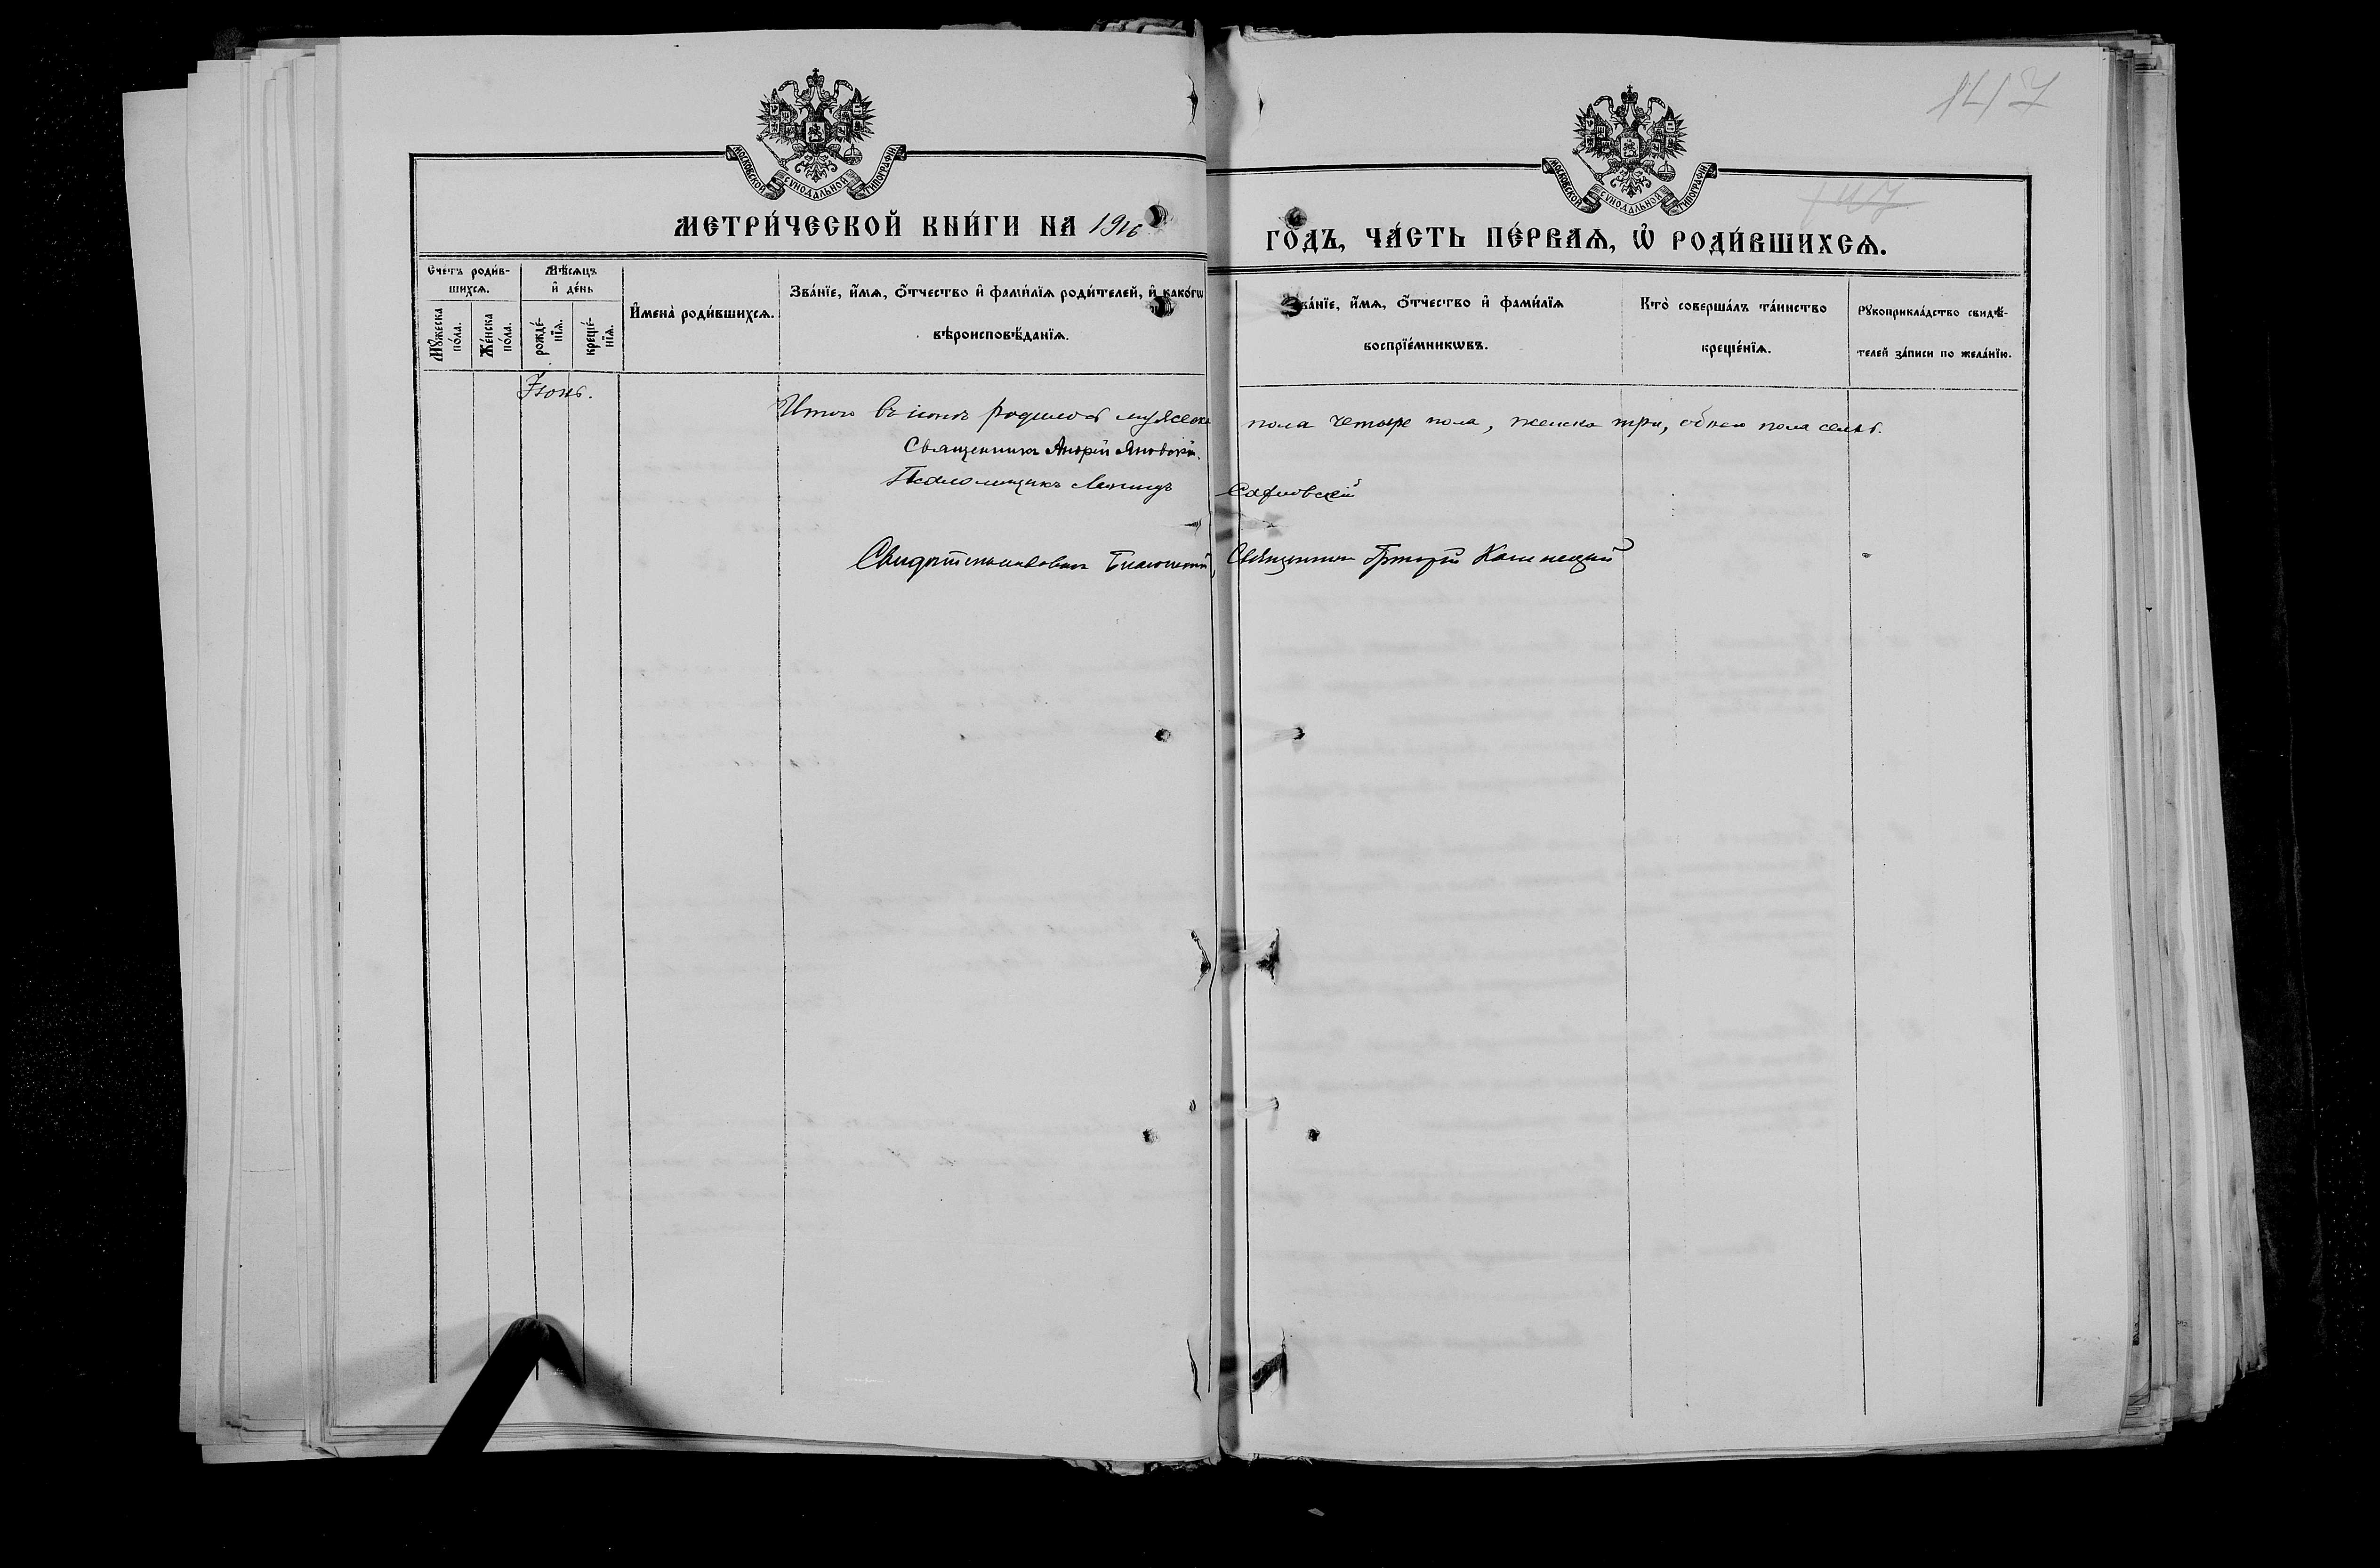 147
МОСКОВСКОЙ СѴНОДАЛЬНОЙ ТИПОГРАФІИ
МОСКОВСКОЙ СѴНОДАЛЬНОЙ ТИПОГРАФІИ
147
МЕТРИ́ЧЕСКОЙ КНИ́ГИ НА 1916
ГО́ДЪ, ЧА́СТЬ ПЕ́РВАѦ, Ѡ҆ РОДИ́ВШИХСѦ.
Сче́тъ роди́в-
шихсѧ.
Мꙋ́жеска по́ла.
Же́нска по́ла.
Мѣ́сѧцъ
и҆ де́нь
рожде́-
нїѧ.
креще́-
нїѧ.
И҆мена̀ роди́вшихсѧ.
Зва́нїе, и҆́мѧ, ѻ҆́тчество и҆ фами́лїѧ роди́телей, и҆ како́гѡ
вѣроисповѣ́данїѧ.
Зва́нїе, и҆́мѧ, ѻ҆́тчество и҆ фами́лїѧ
воспрїе́мникѡвъ.
Кто̀ соверша́лъ та́инство
креще́нїѧ.
Рꙋкоприкла́дство свидѣ́-
телей за́писи по жела́нїю.
Іюнь.
Итого въ іюнѣ родилось мужеска пола четыре пола, женска три, обоего пола семь.
Священникъ Андрей Яновскій.
Псаломщикъ Леонидъ
Священникъ Григорій